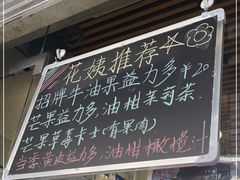 花姨推荐
招牌牛油果益力多¥20
芒果益力多,油柑茉莉茶
芒果草莓卡士(有果肉)
当季黄皮益力多,油柑橄榄汁